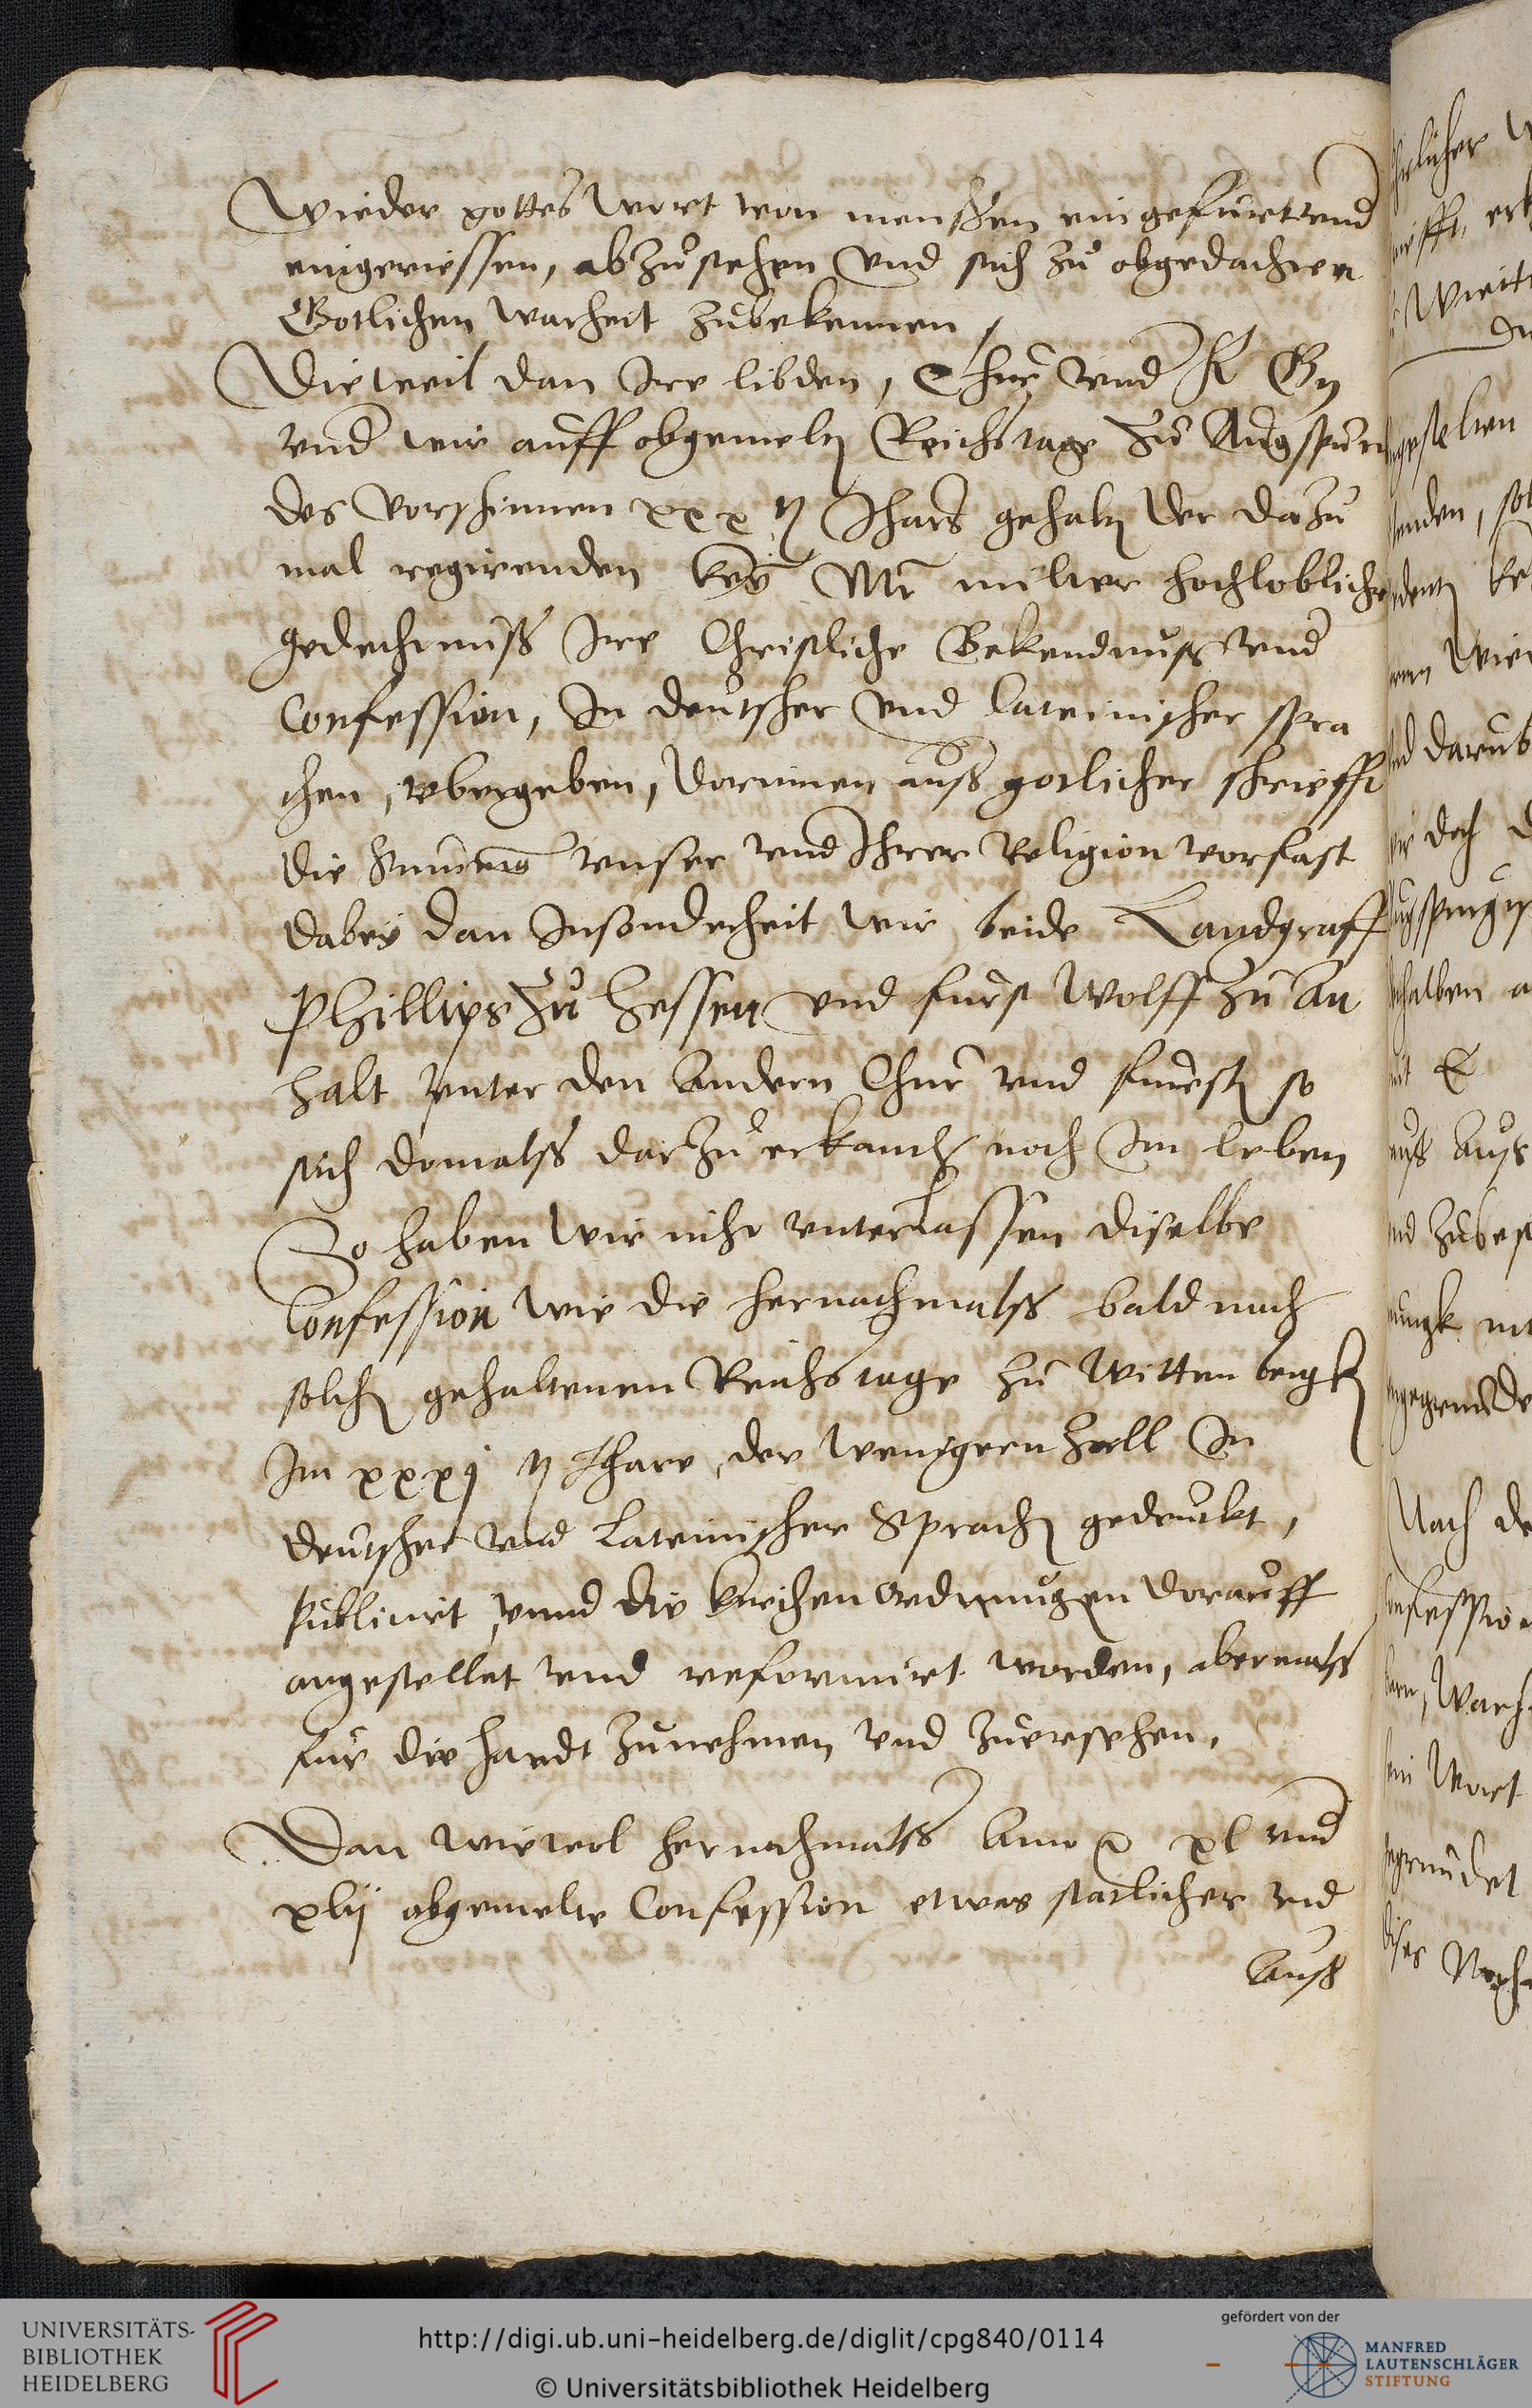 Wieder gottes Wort von menschen eingefuret vnd
eingeriessen, abzustehen vnd sich zu obgedachter
Gotlichen warheit zubekennen
Dieweil dan Ire libden, Chur vnd F Gn
vnd wir auff obgemelten Reichstage zu Augspurg
des vorschinnen xxx ten Ihars gehalten der dazu
mal regirenden key Mt milter hochloblicher
gedechtniss Ire Christliche Bekendnuss vnd
Confession, In deutscher vnd lateinischer spra
chen, vbergeben, dorinnen auss gotlicher schriefft
die Summa vnser vnd Ihrer Religion vorfast
dabey dan Insonderheit wir beide Landgraff
Phillips zu Hessen vnd furst Wolff zu An
halt vnter den Andern Chur vnd fursten so
sich domalss darzu erkandt noch Im leben
So haben wir nicht vnterlassen diselbe
Confession wie die hernachmalss bald nach
solchen gehaltenen Reichstage zu Wittenbergk
Im xxxj ten Ihare, der wenigern Zall In
deutscher vnd Lateinischer Sprachen gedruckt,
publicirt, vnnd die kirchen ordnungen dorauff
angestellet vnd reformirt worden, abermalss
fur die handt zunehmen vnd zuersehen,
Dan wiewol hernachmalss Anno xl vnd
xlij obgemelte Confession etwas statlicher vnd
Auss
UNIVERSITÄTS-
BIBLIOTHEK
HEIDELBERG
http://digi.ub.uni-heidelberg.de/diglit/cpg840/0114
© Universitätsbibliothek Heidelberg
gefördert von der
MANFRED
LAUTENSCHLÄGER
STIFTUNG